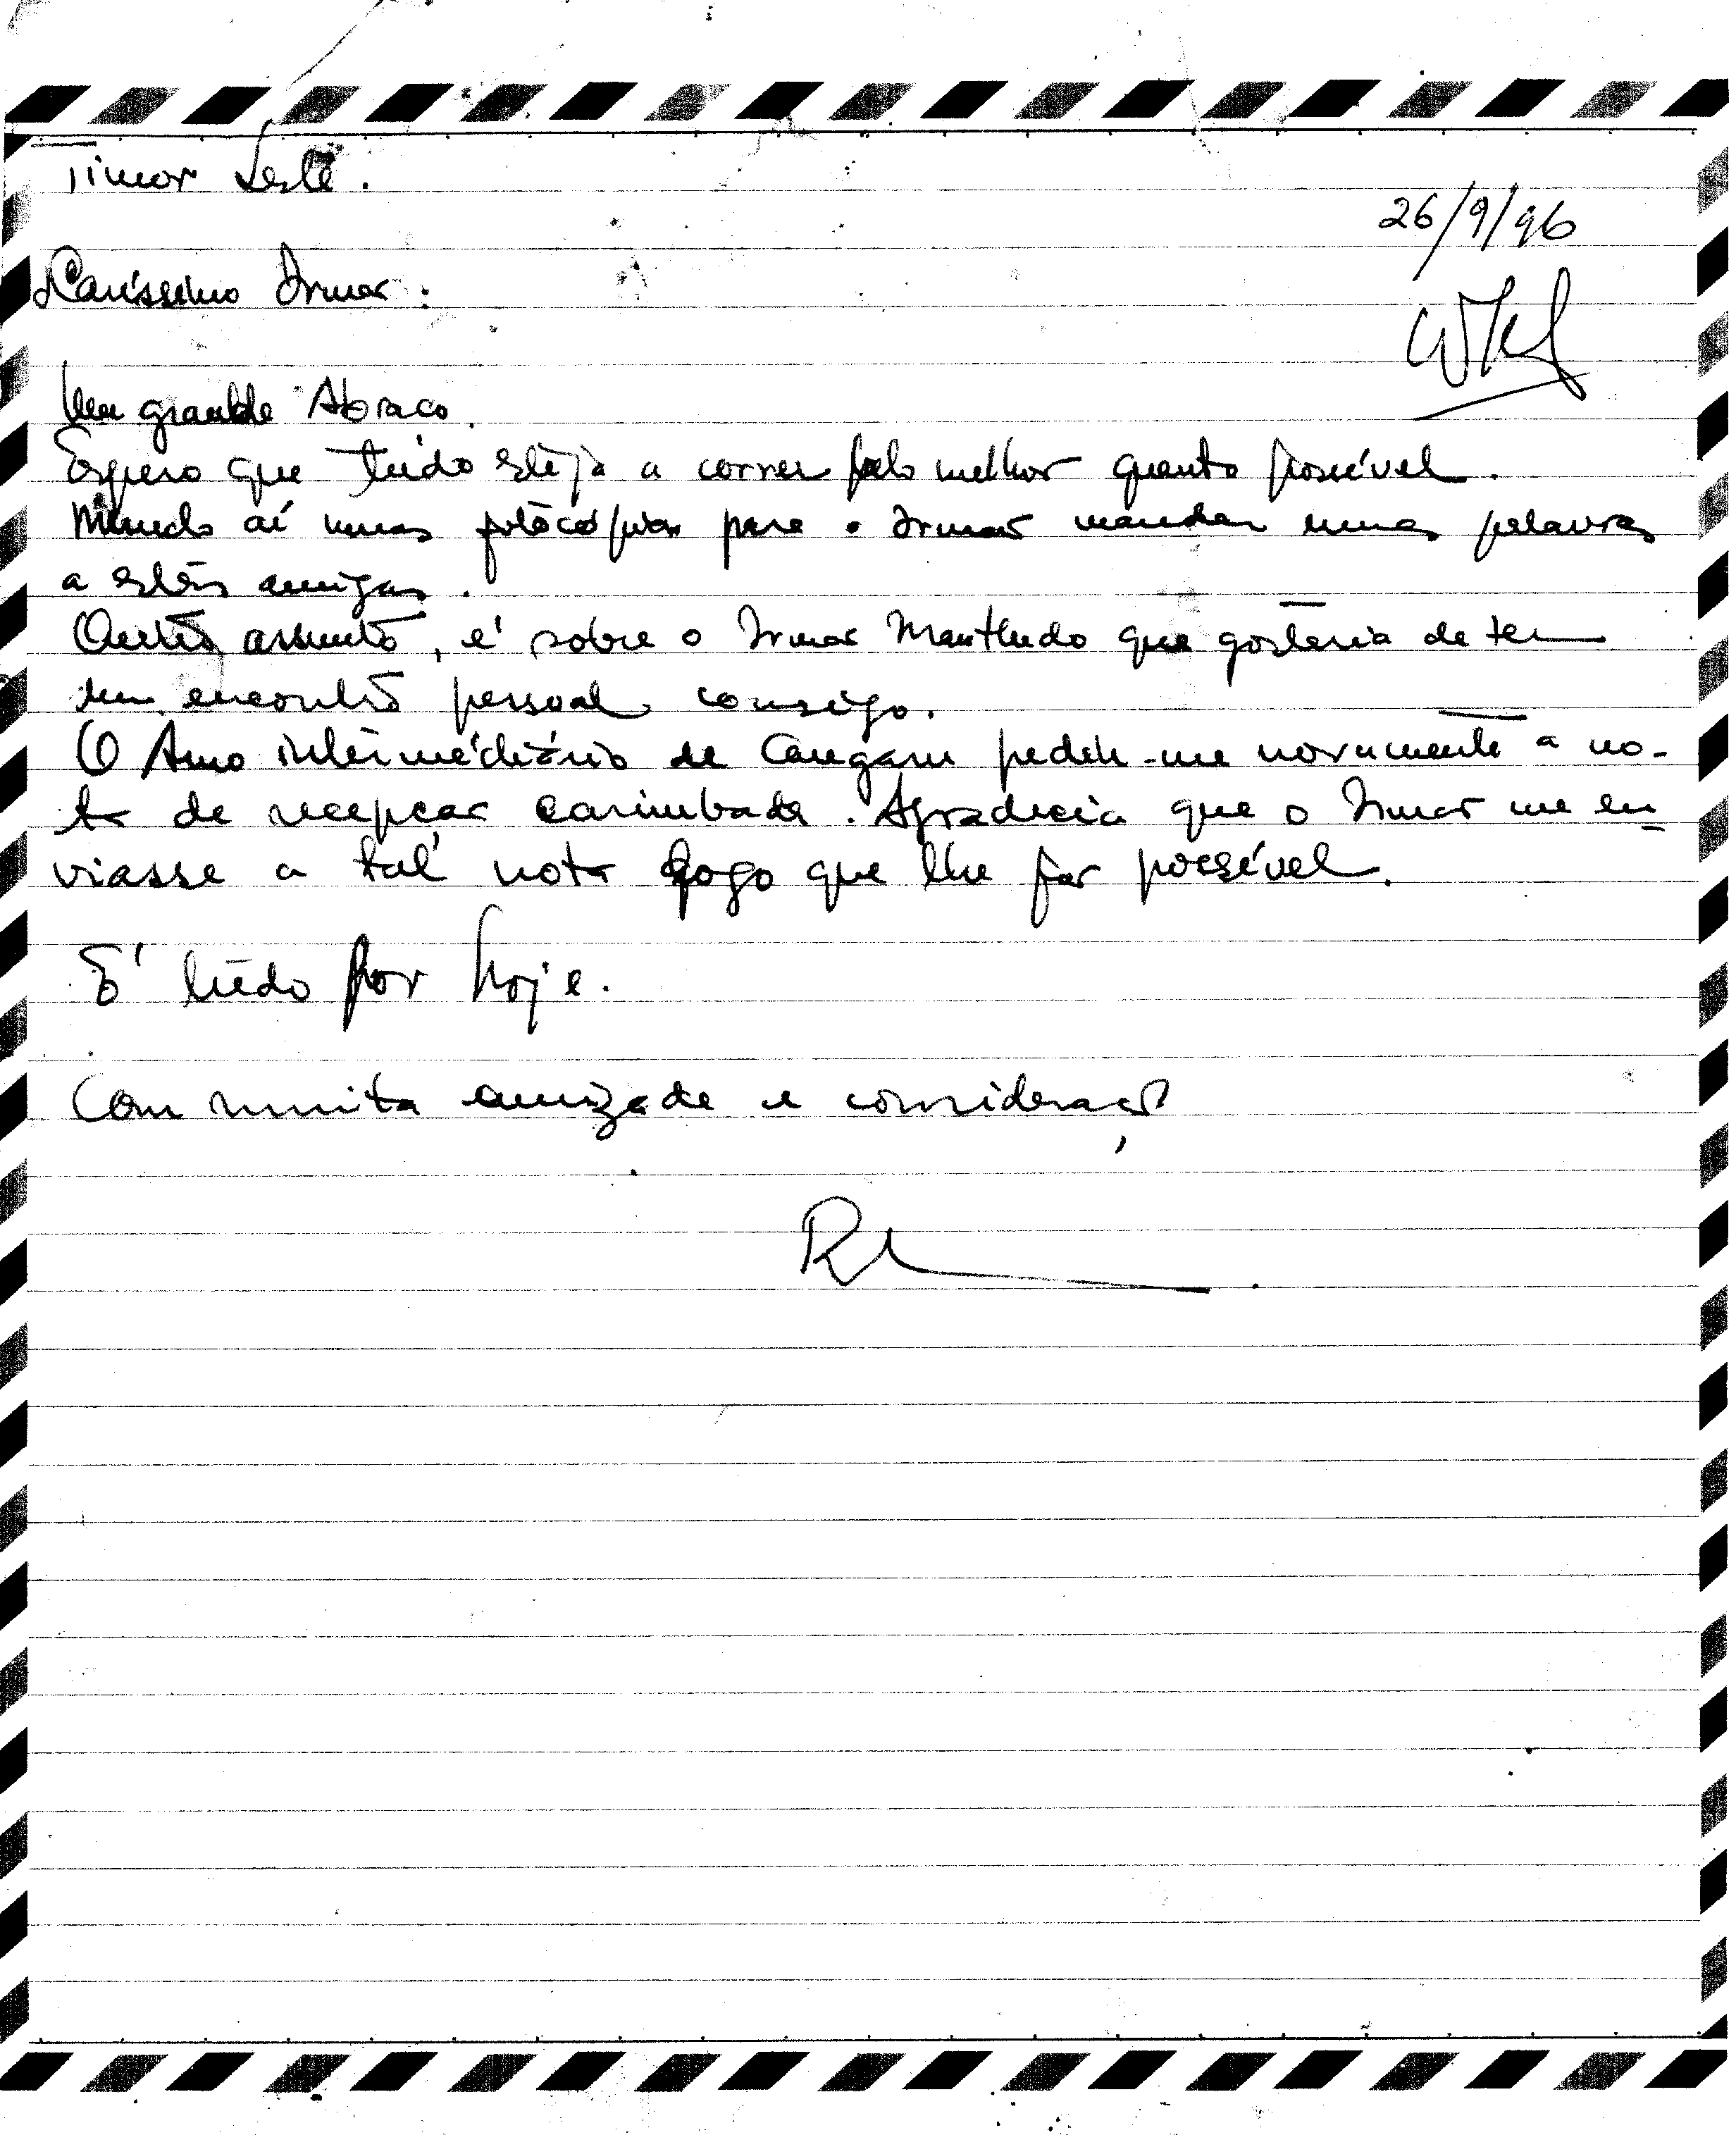 Timor Leste.
26/9/96
Caríssimo Irmão:
Um grande Abraço.
Espero que tudo esteja a correr pelo melhor quanto possível.
Mando aí umas fotocópias para o Irmão mandar umas palavras
a estes amigos.
Outro assunto, é sobre o Irmão Mauthudo que gostaria de ter
um encontro pessoal consigo.
O Amo intermédiário de pediu-me novamente a no-
ta de recepção carimbada. Agradecia que o Irmão me en
viasse a tal nota logo que lhe for possível.
É tudo por hoje.
Com muita amizade e consideração
,